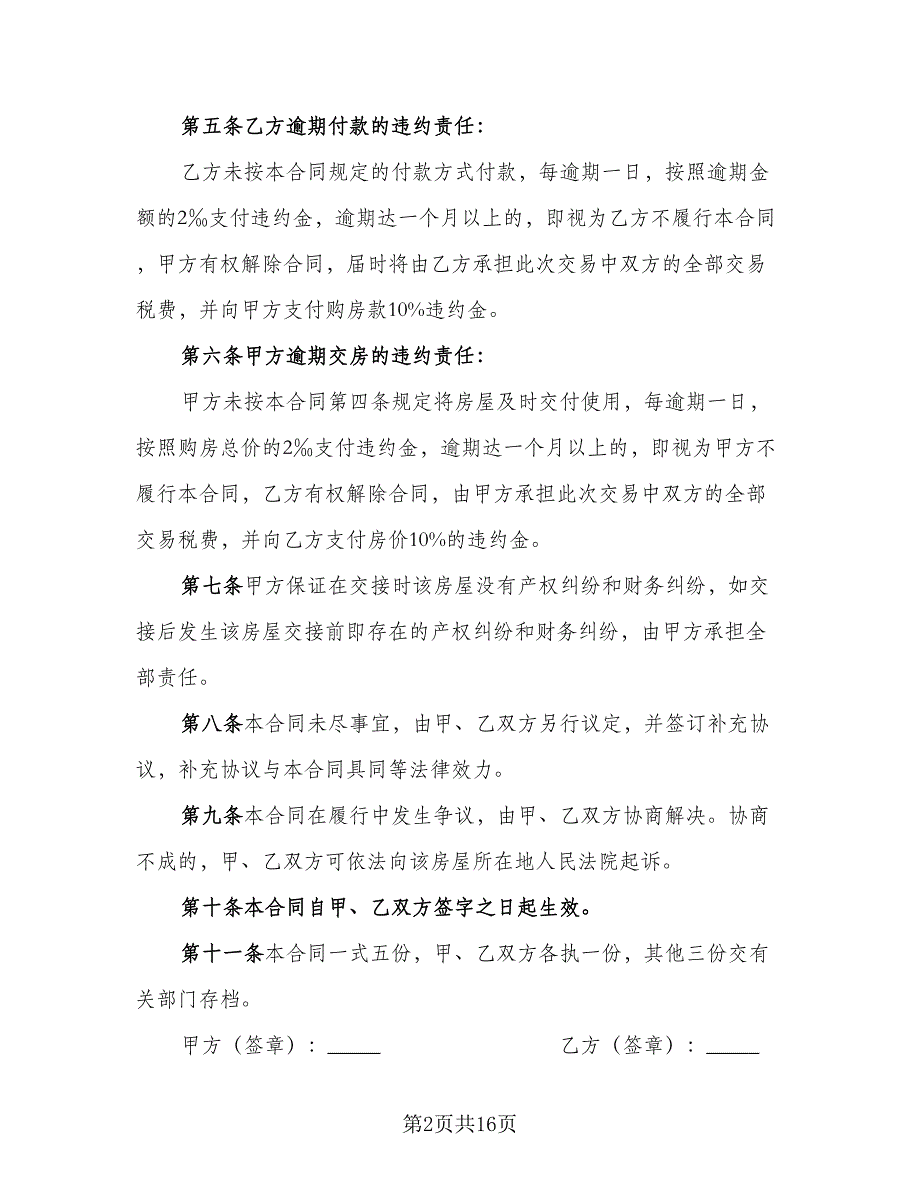 第五条乙方逾期付款的违约责任：
乙方未按本合同规定的付款方式付款，每逾期一日，按照逾期金
额的2‰支付违约金，逾期达一个月以上的，即视为乙方不履行本合同
，甲方有权解除合同，届时将由乙方承担此次交易中双方的全部交易
税费，并向甲方支付购房款10%违约金。
第六条甲方逾期交房的违约责任：
甲方未按本合同第四条规定将房屋及时交付使用，每逾期一日，
按照购房总价的2‰支付违约金，逾期达一个月以上的，即视为甲方不
履行本合同，乙方有权解除合同，由甲方承担此次交易中双方的全部
交易税费，并向乙方支付房价10%的违约金。
第七条甲方保证在交接时该房屋没有产权纠纷和财务纠纷，如交
接后发生该房屋交接前即存在的产权纠纷和财务纠纷，由甲方承担全
部责任。
第八条本合同未尽事宜，由甲、乙双方另行议定，并签订补充协
议，补充协议与本合同具同等法律效力。
第九条本合同在履行中发生争议，由甲、乙双方协商解决。协商
不成的，甲、乙双方可依法向该房屋所在地人民法院起诉。
第十条本合同自甲、乙双方签字之日起生效。
第十一条本合同一式五份，甲、乙双方各执一份，其他三份交有
关部门存档。
甲方（签章）：_____ 乙方（签章）：_____
第2页共16页